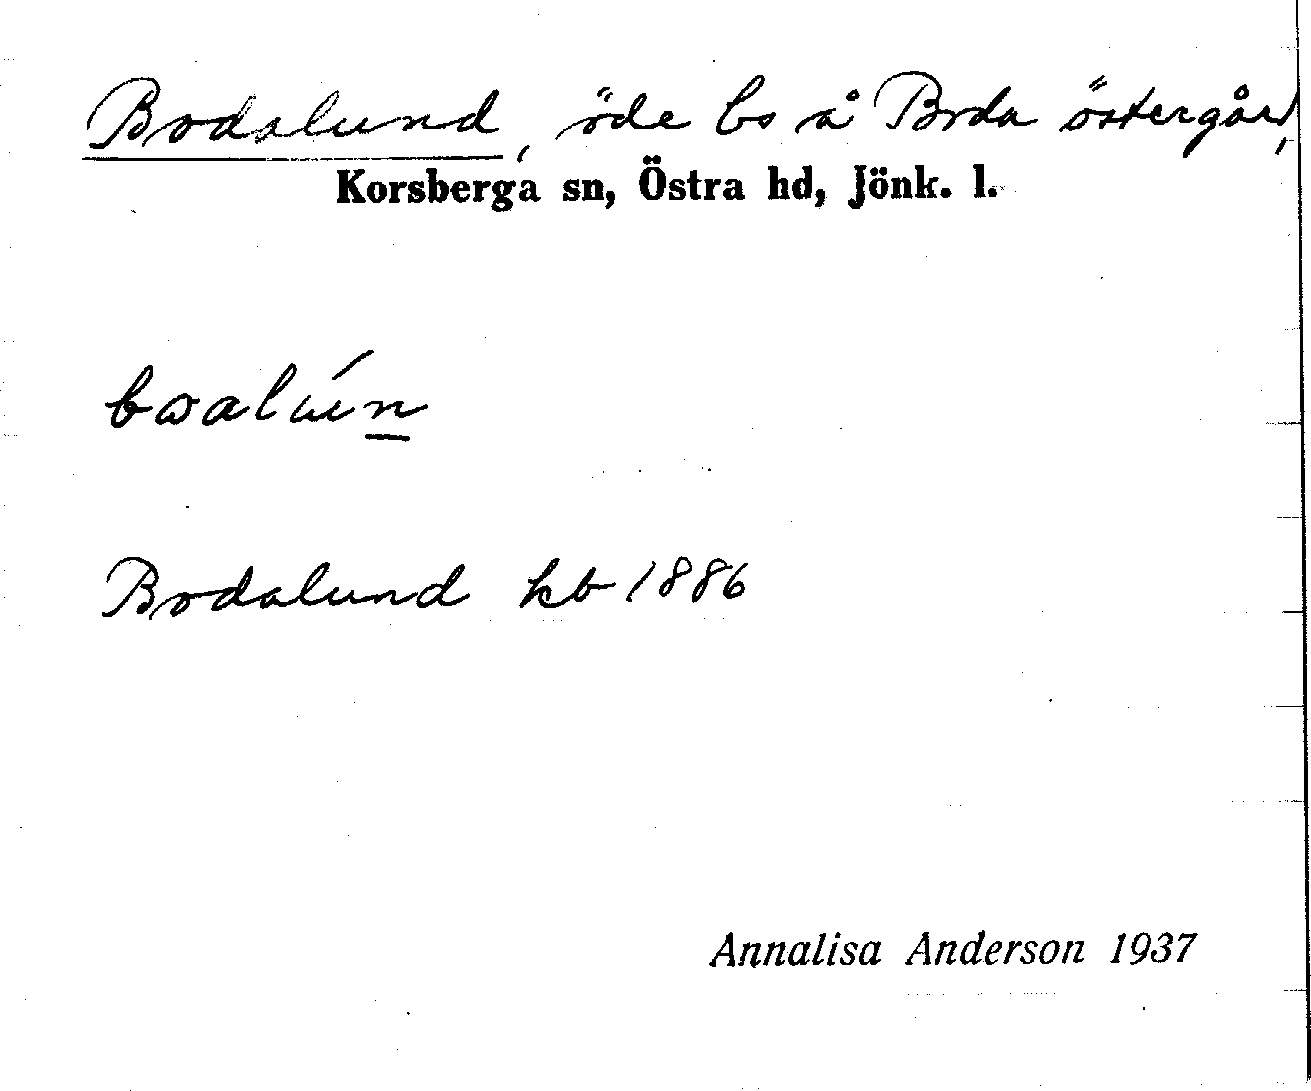 Bodalund, öde bs å Boda östergård,
Korsberga sn, Östra hd, Jönk. l.
Bodalund kb 1886
Annalisa Anderson 1937